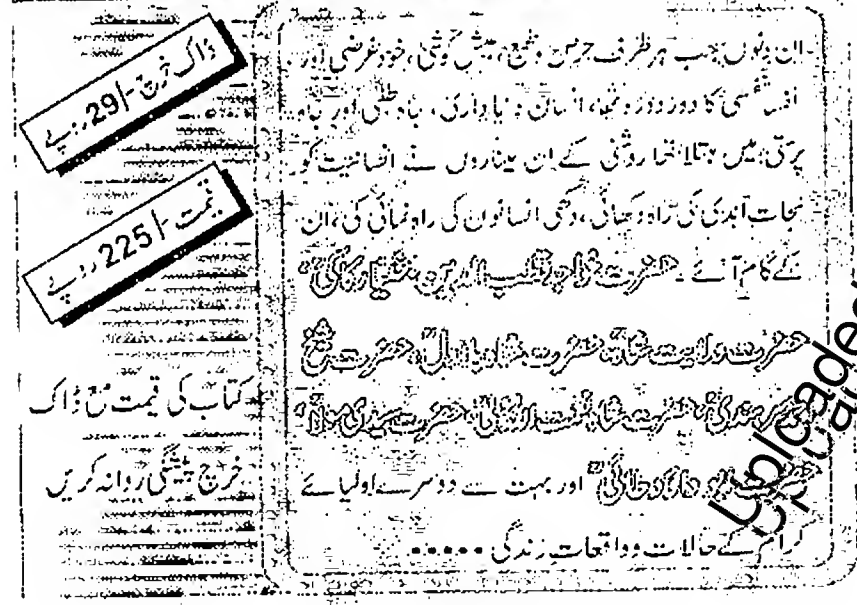 ان دنوں جب ہر طرف حرص و طمع، عیش کوشی، خود غرضی اور
نفسی کا دور دورہ تھا، انسان دنیاداری، جاہ طلبی اور
پرستی میں مبتلا تھا روشنی کے ان میناروں نے انسانیت کو
نجات ابدی کی راہ دکھائی، دکھی انسانوں کی راہ نمائی کی، ان
کے کام آئے۔ حضرت خواجہ قطب الدین بختیار کاکیؒ
حضرت ولایت شاہؒ حضرت بابا لالؒ، حضرت شیخ
سرہندیؒ، حضرت شاہ حضرت سیدی مولاؒ
حضرت اور بہت سے دوسرے اولیائے
کرام کے حالات و واقعات زندگی .....
ڈاک خرچ -/29 روپے
قیمت -/225 روپے
کتاب کی قیمت مع ڈاک
خرچ پیشگی روانہ کریں
Uploaded